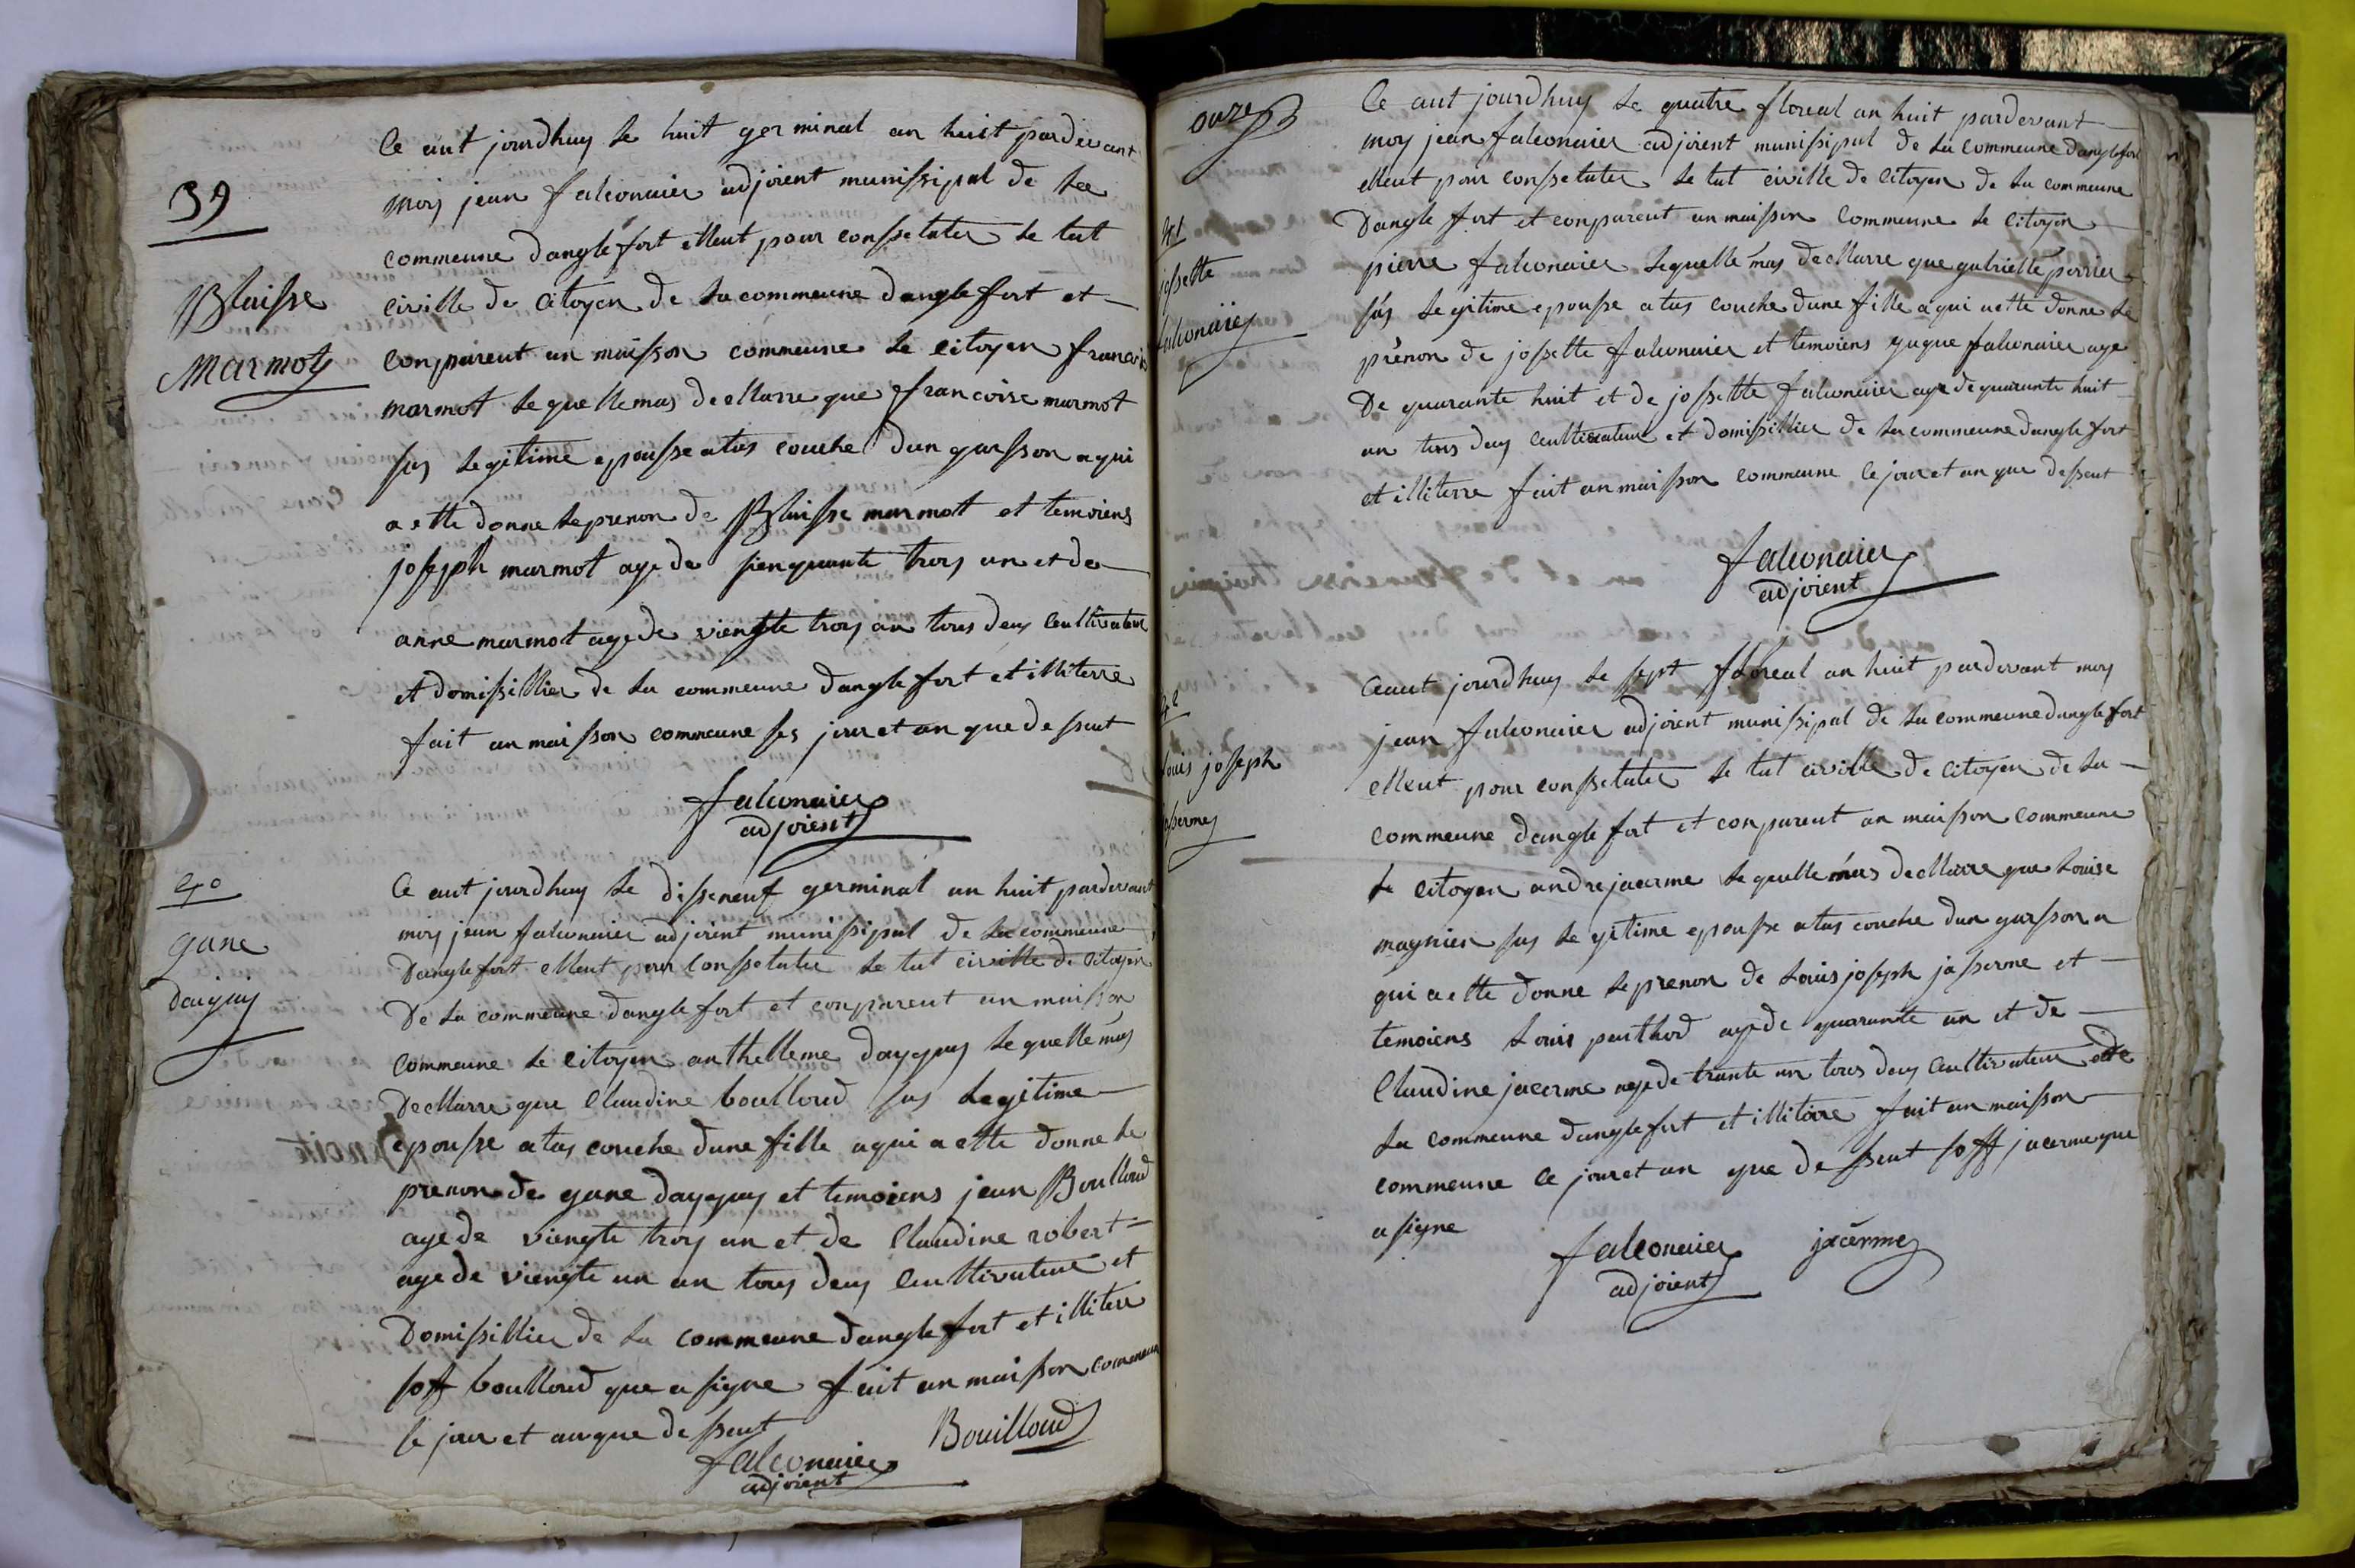 39
Blaisse
Marmot
Ce aut jourdhuy le huit germinal an huit pardevant
moy jean falconnier adjoient munissipal de la
commeune danglefort elleut pour conssetater le tat
civille de citoyen de la commeune danglefort et
conpareut an maisson commeune le citoyen francois
marmot le quelle mas decllarre que francoise marmot
sas legitime epousse atas couche dun garsson a qui
a ette donne le prenon de Blaisse marmot et temoiens
joseph marmot age de sienquante troy an et de
anne marmot age de viengte troy an tous deuy ceultivateur
et domissillier de la commeune danglefort et illiterre
fait an maisson commeune ses jour et an que de sseut
falconaier
adjoient
40
gane
dayguy
Ce aut jourdhuy le disseneuf germinal an huit pardevant
moy jean falconaier adjoient munissipal de la commeune
danglefort elleut pour conssetater le tat civille de citoyen
De la commeune danglefort et conpareut an maisson
commeune le citoyen anthelleme dayguy le quelle mas
decllarre que claudine boulloud sas legitime
epousse atas couche dune fille a qui a ette donne le
prenon de gane dayguy et temoiens jean Boulloud
age de viengte troy an et de claudine robert
age de viengte un an tous deuy ceultivateur et
Domissillier de la commeune danglefort et illiterre
soff boulloud que a signe fait an maisson commeune
le jour et an que de sseut
Bouilloud
falconaier
adjoient
onze
41
jossette
falconaier
Ce aut jourdhuy le quatre floreal an huit pardevant
moy jean falconaier adjoient munissipal de la commeune danglefort
elleut pour conssetater le tat civille de citoyen de la commeune
Danglefort et conpareut an maisson commeune le citoyen
pierre falconaier lequelle mas decllarre que gabrielle perrier
sas legitime epousse atas couche dune fille a qui a ette donne le
prenon de jossette falconaier et temoiens falconaier age
De quarante huit et de jossette falconaier age de quarante huit
an tous deuy ceultivateur et domissillier de la commeune danglefort
et illiterre fait an maisson commeune le jour et an que de sseut
falconaier
adjoient
42
Louis joseph
jasserme
Ceaut jourdhuy le sept floreal an huit pardevant moy
jean falconaier adjoient munissipal de la commeune danglefort
elleut pour conssetater le tat civille de citoyen de la
commeune danglefort et conpareut an maisson commeune
le citoyen andre jacerme le quelle mas decllarre que Louise
magnien sas legitime epousse atas couche dun garsson a
qui a ette donne le prenon de Louis joseph jasserme et
temoiens Louis peuthod age de quarante an et de
Claudine jacerme age de trante an tous deuy ceultivateur et de
La commeune danglefort et illiterre fait an maisson
commeune le jour et an que de sseut soff jacerme que
a signe
falconaier
adjoient
jacerme